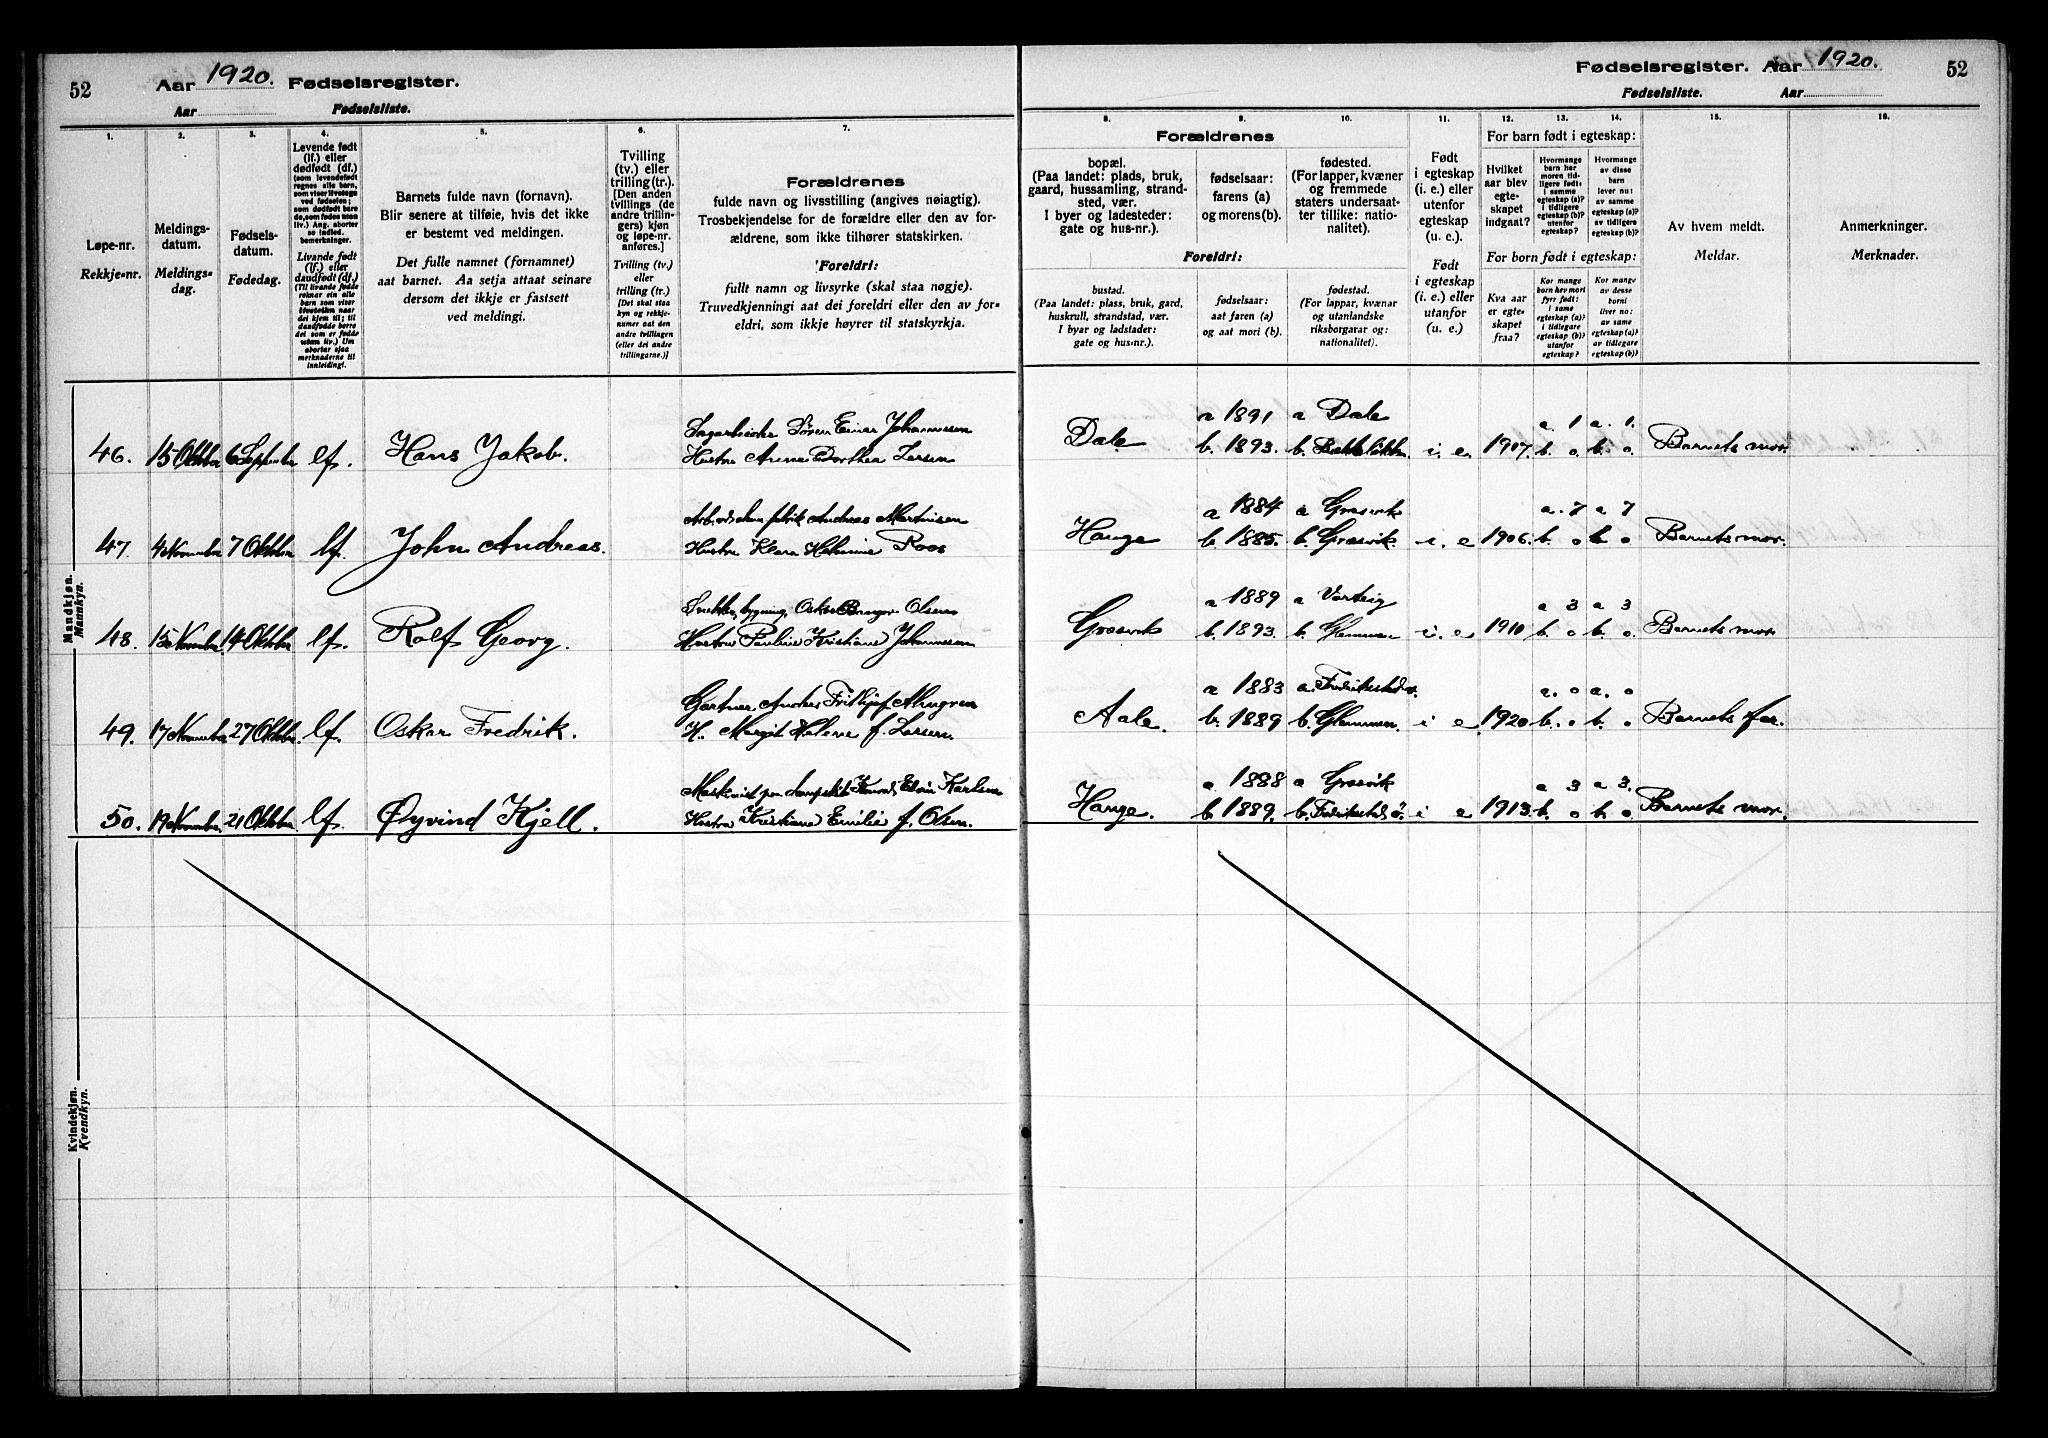 52
Aar 1920. Fødselsregister.
Aar Fødselsliste.
1. 2. 3. 4. 5. 6. 7.
Løpe-nr.
Rekkje-nr.
Meldings-
datum.
Meldings-
dag.
Fødsels-
datum.
Fødedag.
Levende født
(lf.) eller
dødfødt (df.)
(som levendefødt
regnes alle barn,
som viser livstegn
ved fødselen;
som dødfødt bare
de, som fødes uten
liv.) Ang. aborter
se indled.
bemerkninger.
Livande født
(lf.) eller
daudfødt (df.)
Barnets fulde navn (fornavn).
Blir senere at tilføie, hvis det ikke
er bestemt ved meldingen.
Det fulle namnet (fornamnet)
aat barnet. Aa setja attaat seinare
dersom det ikkje er fastsett
ved meldingi.
Tvilling
(tv.) eller
trilling (tr.).
[Den anden
tvillings (de
andre trillin-
gers) kjøn
og løpe-nr.
anføres.]
Tvilling (tv.)
eller
trilling (tr.)
[Det skal staa
kyn og rekkje-
numer aat den
andre tvillingen
(eller dei andre
trillingarne.)]
Forældrenes
fulde navn og livsstilling (angives nøiagtig).
Trosbekjendelse for de forældre eller den av for-
ældrene, som ikke tilhører statskirken.
Foreldri:
fullt namn og livsyrke (skal staa nøgje).
Truvedkjenningi aat dei foreldri eller den av for-
eldri, som ikkje høyrer til statskyrkja.
Mandkjøn.
Mannkyn.
46. 15 Oktober 6 September lf. Hans Jakob.
Søren Einar Johannessen
Hustru Anna Dorthea Larsen
47. 4 November 7 Oktober lf. John Andreas.
fabrik Andreas Martinisen
Hustru Klara Roos
48. 15 November 14 Oktober lf. Rolf Georg.
Olsen
Hustru Pauline Kristiane Johannessen
49. 17 November 27 Oktober lf. Oskar Fredrik.
Gartner Anders Frithjof Almgren
H. Margit Helene f. Larsen.
50. 19 November 21 Oktober lf. Øyvind Kjell.
Maskinist Karlsen
Hustru Kristiane Emilie f. Olsen.
Kvindekjøn.
Kvendkyn.
Fødselsregister. Aar 1920. 52
Fødselsliste. Aar
8. 9. 10. 11. 12. 13. 14. 15. 16.
Forældrenes
bopæl.
(Paa landet: plads, bruk,
gaard, hussamling, strand-
sted, vær.
I byer og ladesteder:
gate og hus-nr.).
fødselsaar:
farens (a)
og morens (b).
fødested.
(For lapper, kvæner
og fremmede
staters undersaat-
ter tillike: natio-
nalitet).
Foreldri:
bustad.
(Paa landet: plass, bruk, gard,
huskrull, strandstad, vær.
I byar og ladstader:
gate og hus-nr.).
fødselsaar:
aat faren (a)
og aat mori (b).
fødestad.
(For lappar, kvænar
og utanlandske
riksborgarar og:
nationalitet).
Født
i egteskap
(i. e.) eller
utenfor
egteskap
(u. e.).
Født
i egteskap
(i. e.) eller
utanfor
(u. e.)
For barn født i egteskap:
Hvilket
aar blev
egte-
skapet
indgaat?
Hvormange
barn har
moren tid-
ligere født:
i samme
egteskap (a)?
i tidligere
egteskap (b)?
utenfor
egteskap?
Hvormange
av disse
barn
lever nu:
av samme
egteskap (a)?
av tidligere
egteskap (b)?
For born født i egteskap:
Kva aar
er egte-
skapet
fraa?
Kor mange
born hev mori
fyrr født:
i same
egteskap (a)?
i tidlegare
egteskap (b)?
utanfor
egteskap?
Kor mange
av desse
borni
liver nu:
av same
egteskap (a)?
av tidlegare
egteskap (b)?
Av hvem meldt.
Meldar.
Anmerkninger.
Merknader.
a 1891 a Dale a. 1 a. 1.
Dale b. 1893. b. i. e. 1917. b. o. b. o. Barnets mor.
a 1884 a Græsvik a. 7 a 7
Hauge b. 1885. b. Græsvik i. e 1906. b. o b. o Barnets mor.
a 1889 a Varteig a 3 a 3
Græsvik b. 1893. b. Glemmen i. e 1910 b. o b. o Barnets mor
a 1883 a. Fredrikstad a. o a. o
Aale. b. 1889 b. Glemmen i e 1920 b. o b. o Barnets far.
a 1888 a Græsvik a 3 a 3.
Hauge. b 1889. b. Fredrikstad i e 1913. b. o b. o. Barnets mor.